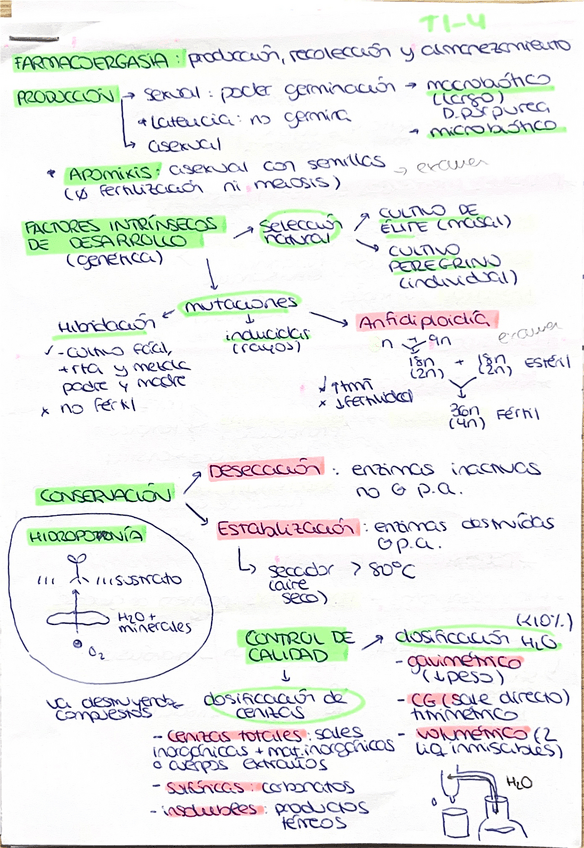 T1-4
FARMACOERGASIA: producción, recolección y almacenamiento
PRODUCCIÓN → sexual: poder germinación → macrobiótico
(largo)
D. purpurea
*Latencia: no germina → microbiótico
↳ asexual
* APOMIXIS: asexual con semillas → examen
(∅ fertilización ni meiosis)
FACTORES INTRÍNSECOS
DE DESARROLLO
(genética)
→ selección
natural
CULTIVO DE
ÉLITE (masal)
CULTIVO
PEREGRINO
(individual)
mutaciones
inducidas
(rayos)
Hibridación
✓ - cultivo fácil,
+ rta y mezcla
padre y madre
x no fértil
Anfidiploidía
examen
n + 9n
18n + 18n Estéril
(2n) (2n)
36n Fértil
(4n)
x ↓ fertilidad
CONSERVACIÓN
DESECACIÓN: enzimas inactivas
no θ p.a.
ESTABILIZACIÓN: enzimas destruidas
θ p.a.
↳ secador > 80°C
(aire
seco)
HIDROPONÍA
sustrato
H2O +
minerales
O2
CONTROL DE
CALIDAD
→ dosificación H2O
(<10%)
- gavimétrico
(↓peso)
- CG (sale directo)
- volumétrico (2
liq inmiscibles)
H2O
va destruyendo
compuestos
dosificación de
cenizas
- cenizas totales: sales
inorgánicas + mat. inorgánicas
o cuerpos extraños
- sulfúricas: carbonatos
- insolubles: productos
térreos